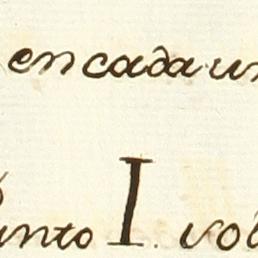 en cada un
unto I. vol